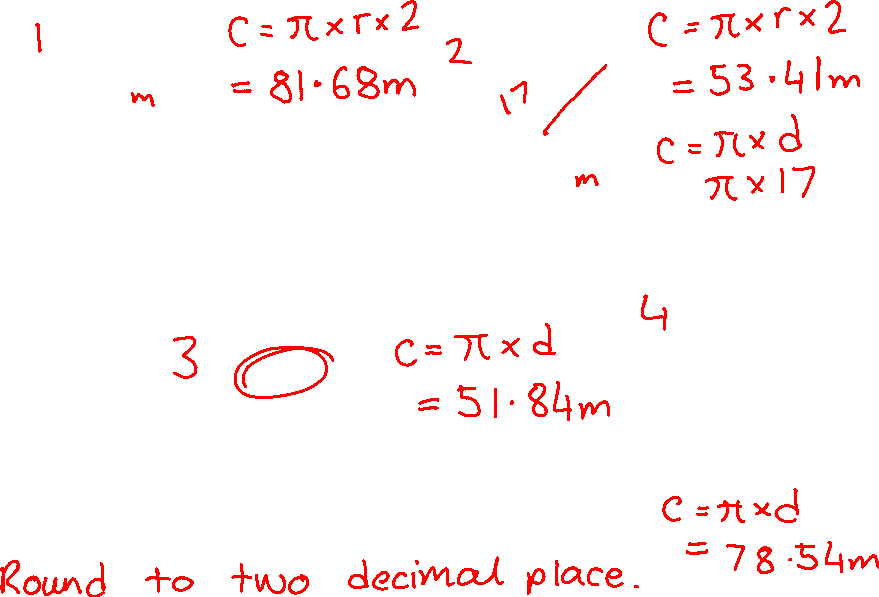 1
C = π × r × 2
= 81.68m
m
2
17
C = π × r × 2
= 53.41m
C = π × d
π × 17
m
3
C = π × d
= 51.84m
4
C = π × d
= 78.54m
Round to two decimal place.